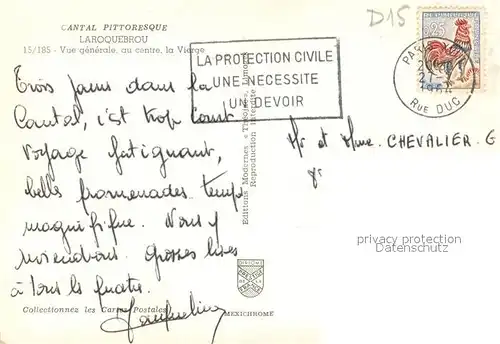 CANTAL PITTORESQUE
LAROQUEBROU
15/185 - Vue générale, au centre, la Vierge
D15
25
PARIS
21-
196
RUE DUC
LA PROTECTION CIVILE
UNE NECESSITE
UN DEVOIR
Trois jours dans le
Cantal, c'est trop court
Voyage fatigant,
belles promenades temps
magnifique. Nous y
reviendrons. Grosses bises
à tous les quatre.
Jacqueline
Mr et Mme. CHEVALIER. G
Editions Modernes « Théojac », Limoges
Reproduction interdite
THEOJAC
MEXICHROME
Collectionnez les Cartes Postales
privacy protection
Datenschutz